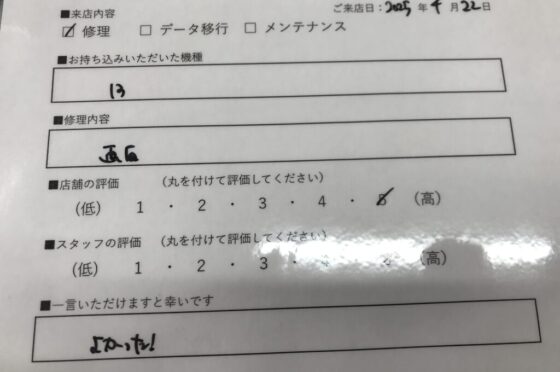 ■来店内容
ご来店日：2025年4月22日
☑修理 □データ移行 □メンテナンス
■お持ち込みいただいた機種
13
■修理内容
画面
■店舗の評価 （丸を付けて評価してください）
（低） 1 ・ 2 ・ 3 ・ 4 ・ 5 （高）
■スタッフの評価 （丸を付けて評価してください）
（低） 1 ・ 2 ・ 3 ・ 4 （高）
■一言いただけますと幸いです
よかった!